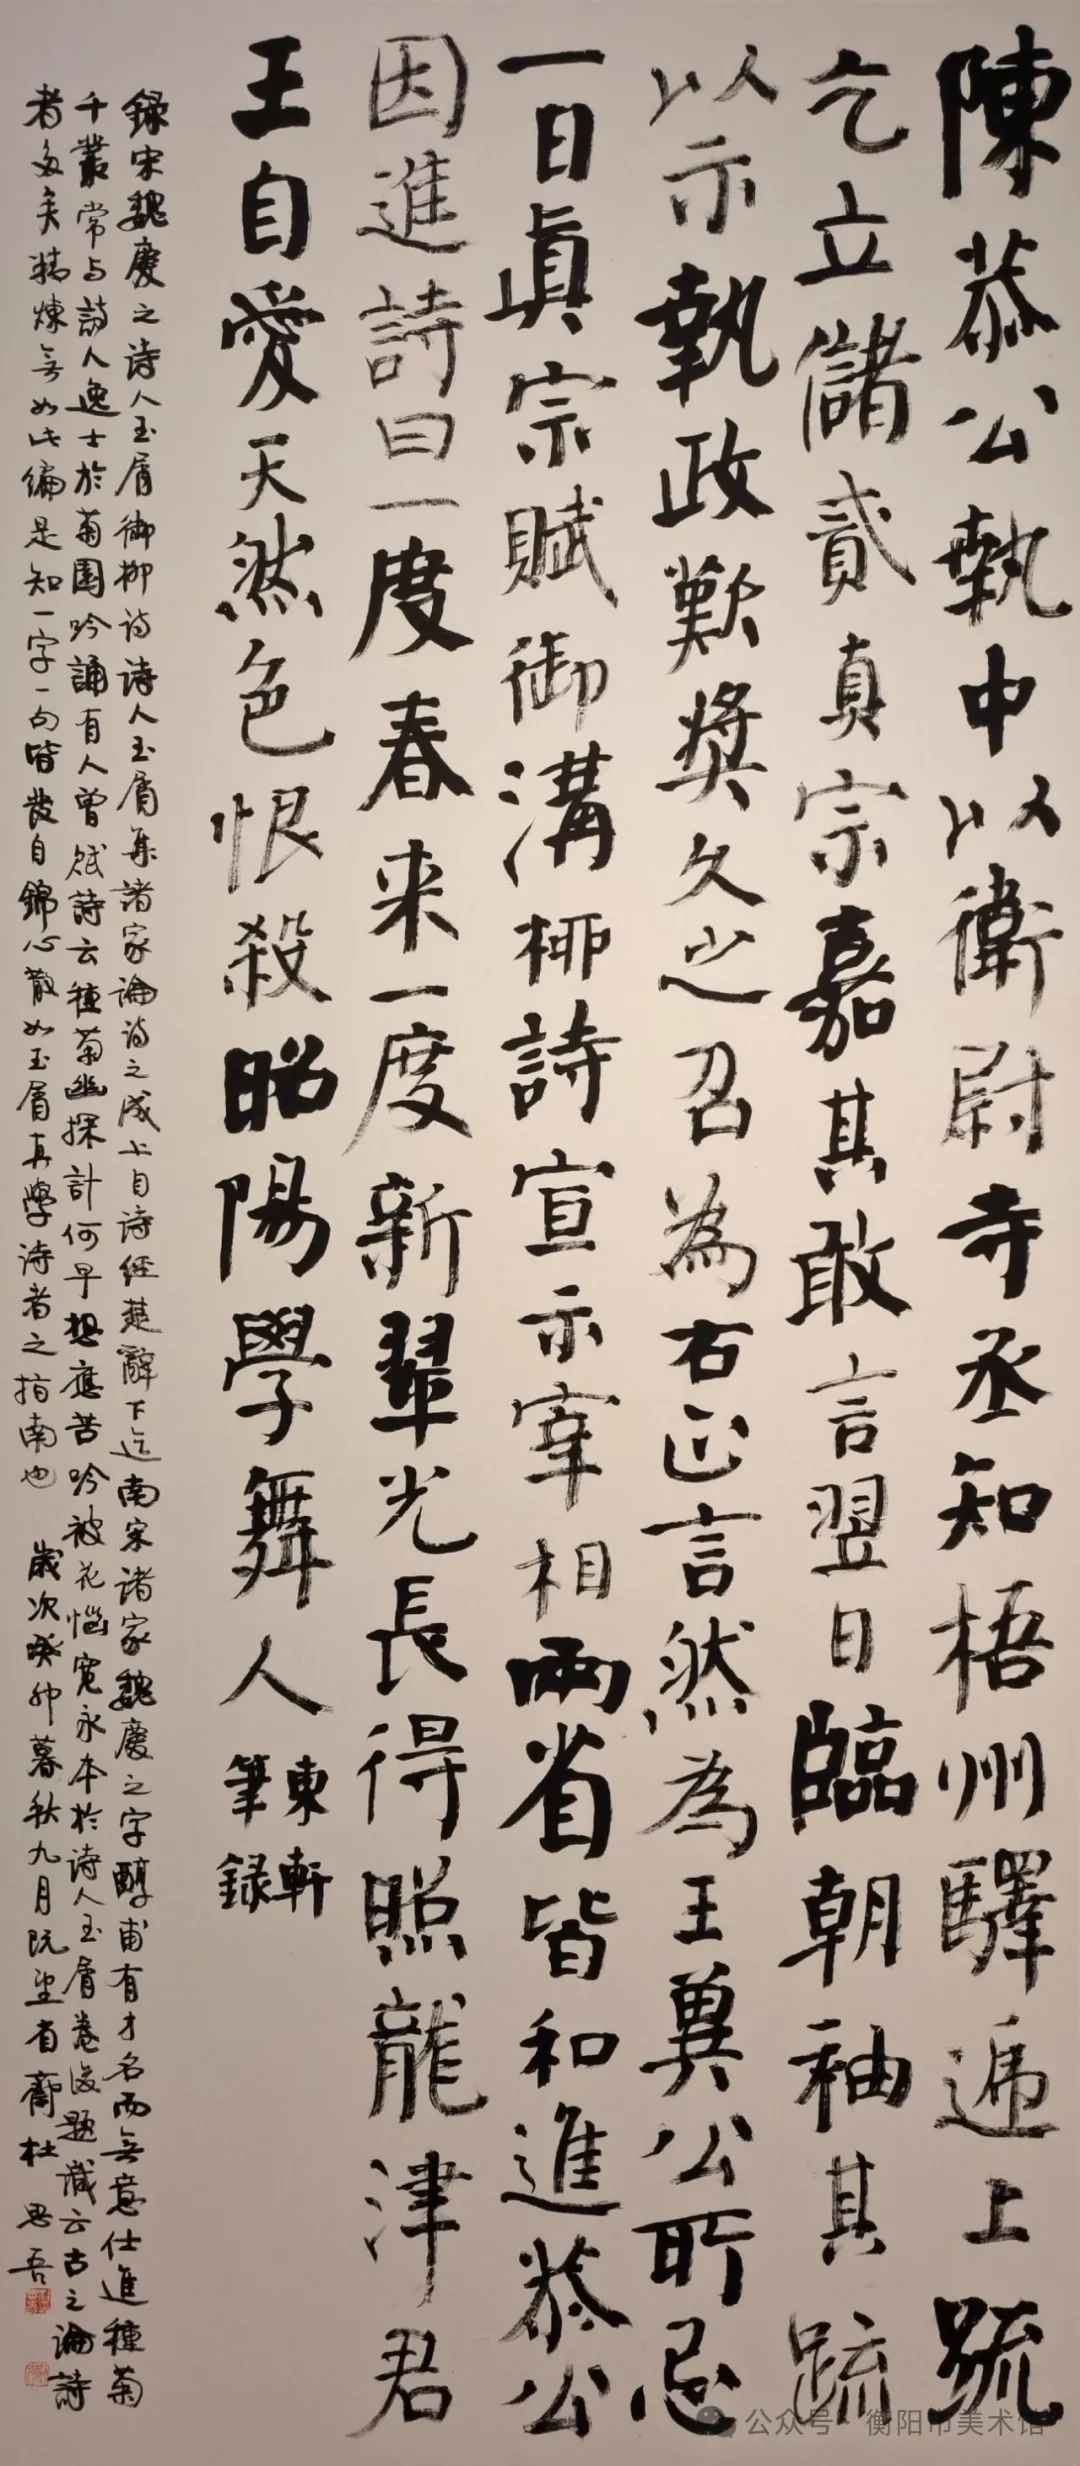 陳恭公執中以衛尉寺丞知梧州驛遞上疏
乞立儲貳真宗嘉其敢言翌日臨朝袖其疏
以示執政歎獎久之召為右正言然為王冀公所忌
一日真宗賦御溝柳詩宣示宰相兩省皆和進恭公
因進詩曰一度春来一度新翠光長得照龍津君
王自愛天然色恨殺昭陽學舞人
東軒
筆録
録宋魏慶之诗人玉屑御柳诗诗人玉屑集諸家論诗之成上自诗经楚辭下迄南宋诸家魏慶之字醇甫有才名而無意仕進種菊
千叢常与詩人逸士於菊園吟誦有人曾赋詩云種菊幽探計何早想應苦吟被花惱寬永本於诗人玉屑卷後题識云古之論詩
者多矣精煉無如此編是知一字一句皆發自錦心散如玉屑真學诗者之指南也 歲次癸卯暮秋九月阮堂有齋杜思吾
公众号 衡阳市美术馆